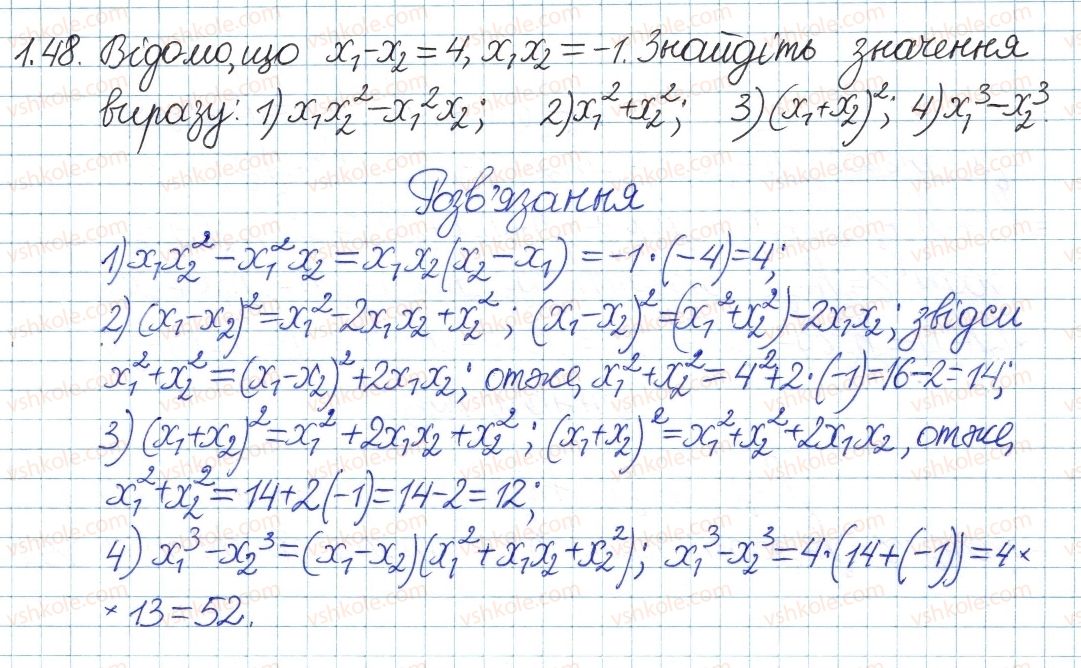 1.48. Відомо, що x₁-x₂=4, x₁x₂=-1. Знайдіть значення
виразу: 1) x₁x₂²-x₁²x₂; 2) x₁²+x₂²; 3) (x₁+x₂)²; 4) x₁³-x₂³.
Розв'язання
1) x₁x₂²-x₁²x₂=x₁x₂(x₂-x₁)=-1·(-4)=4;
2) (x₁-x₂)²=x₁²-2x₁x₂+x₂²; (x₁-x₂)²=(x₁²+x₂²)-2x₁x₂; звідси
x₁²+x₂²=(x₁-x₂)²+2x₁x₂; отже, x₁²+x₂²=4²+2·(-1)=16-2=14;
3) (x₁+x₂)²=x₁²+2x₁x₂+x₂²; (x₁+x₂)²=x₁²+x₂²+2x₁x₂, отже,
x₁²+x₂²=14+2(-1)=14-2=12;
4) x₁³-x₂³=(x₁-x₂)(x₁²+x₁x₂+x₂²); x₁³-x₂³=4·(14+(-1))=4×
×13=52.